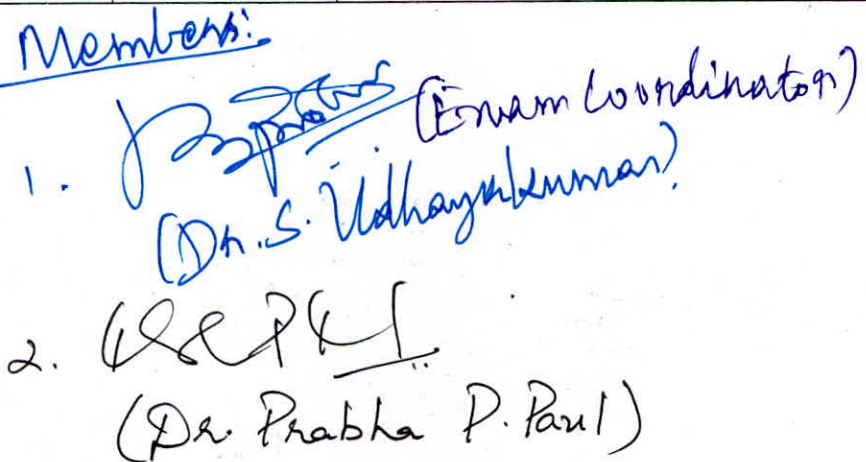 Members:
1. (Exam Coordinator)
(Dr. S. Udhayakumar)
2.
(Dr. Prabha P. Paul)